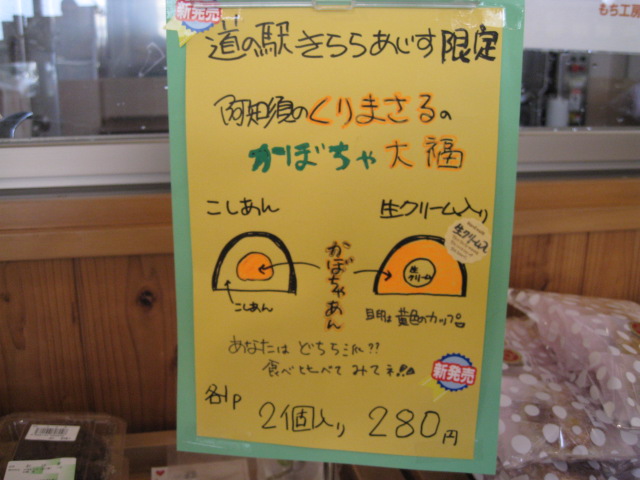 もち工房
新発売
道の駅きららあじす限定
阿知須のくりまさるの
かぼちゃ大福
こしあん
生クリーム入り
生クリーム入
かぼちゃあん
生
クリーム
こしあん
目印は黄色のカップ。
あなたは どちら派??
食べ比べて みてネ!!
新発売
各1P
2個入り 280円